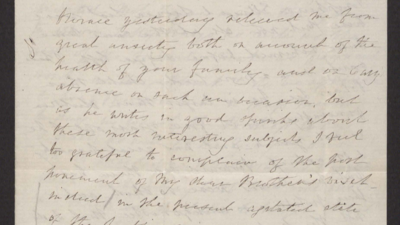 yesterday released me from
great anxiety both on account of the
health of your family, and
absence on such an occasion, but
as he writes in good spirits about
these most interesting subjects I feel
too grateful to complain of the post
ponement of my dear Brother's visit
indeed in the present agitated state
of the